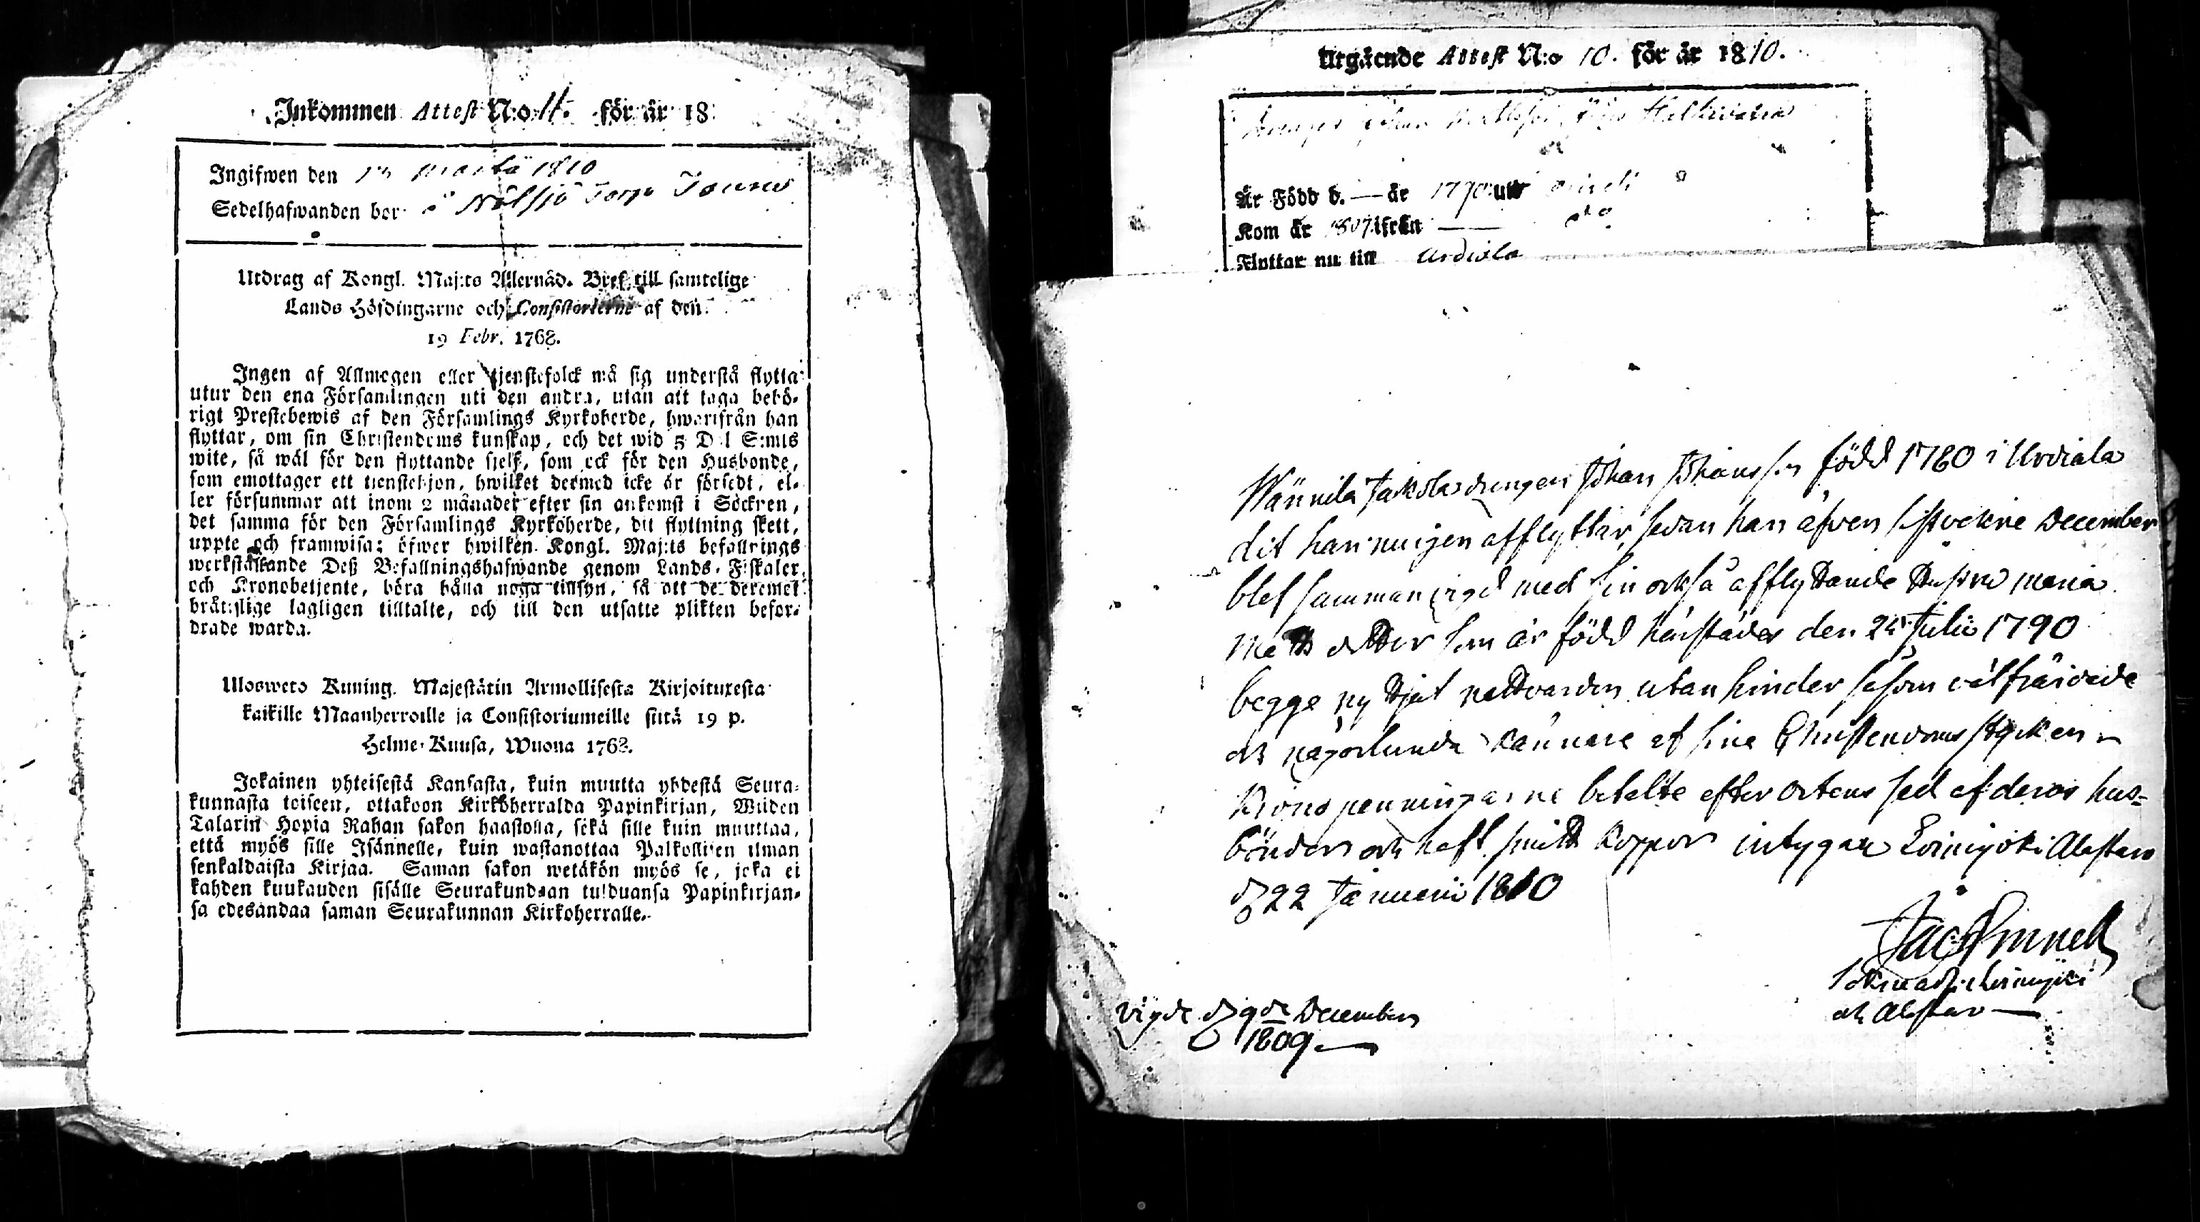 Inkommen Attest N:o 4. för år 18
Ingifwen den 13 martii 1810
Sedelhafwanden bor å Nälsjö Torp
Utdrag af Kongl. Maj:ts Allernåd. Bref till samtelige
Lands Höfdingarne och Consistorierne af den
19 Febr. 1768.
Ingen af Allmogen eller tjenstefolck må sig understå flytta
utur den ena Församlingen uti den andra, utan att taga behö-
rigt Prestebewis af den Församlings Kyrkoherde, hwarifrån han
flyttar, om sin Christendoms kunskap, och det wid 5 D:l S:mts
wite, så wäl för den flyttande sjelf, som ock för den Husbonde,
som emottager ett tienstehjon, hwilket dermed icke är försedt, el-
ler försummar att inom 2 månader efter sin ankomst i Sockren,
det samma för den Församlings Kyrkoherde, dit flyttning skett,
uppte och framwisa; öfwer hwilken Kongl. Maj:ts befallnings
werkställande Deß Befallningshafwande genom Lands-Fiskaler
och Kronobetjente, böra hålla noga tillsyn, så att de deremot
brätslige lagligen tilltalte, och till den utsatte plikten befor-
drade warda.
Ulosweto Kuning. Majestätin Armollisesta Kirjoituxesta
kaikille Maanherroille ja Consistoriumeille siitä 19 p.
Helme-Kuusa, Wuona 1768.
Jokainen yhteisestä Kansasta, kuin muutta yhdestä Seura-
kunnasta toiseen, ottakoon Kirkoherralda Papinkirjan, Wiiden
Talarin Hopia Rahan sakon haastolla, sekä sille kuin muuttaa,
että myös sille Isännelle, kuin wastanottaa Palkollisen ilman
senkaldaista Kirjaa. Saman sakon wetäkön myös se, joka ei
kahden kuukauden sisälle Seurakundaan tulduansa Papinkirjan-
sa edesandaa saman Seurakunnan Kirkoherralle.
Utgående Attest N:o 10. för år 1810.
Är Född d. — är 1790 utr
Kom år 1807 ifrån
Flyttar nu till Urdiala
Wännilä Jakolas drengen Johan Johansson född 1780 i Urdiala
dit han nu igen afflyttar, sedan han äfven sistvekne December
blef samman vigd med sin också afflyttande Hustru Maria
Matts dotter som är född härstädes den 25 Julii 1790
begge nyttjat nattvarden utan hinder såsom välfräjdade
och någorlunda kännare af sine Christendoms stycken
Kronopenningarne betalte efter ortens sed af deras hus-
bönder och haft smitt koppor intygar Loimijoki Alastaro
d 22 Januarii 1810
Sokneadj. i Loimijoki
och Alastaro —
Vigde d 9de December
1809 —